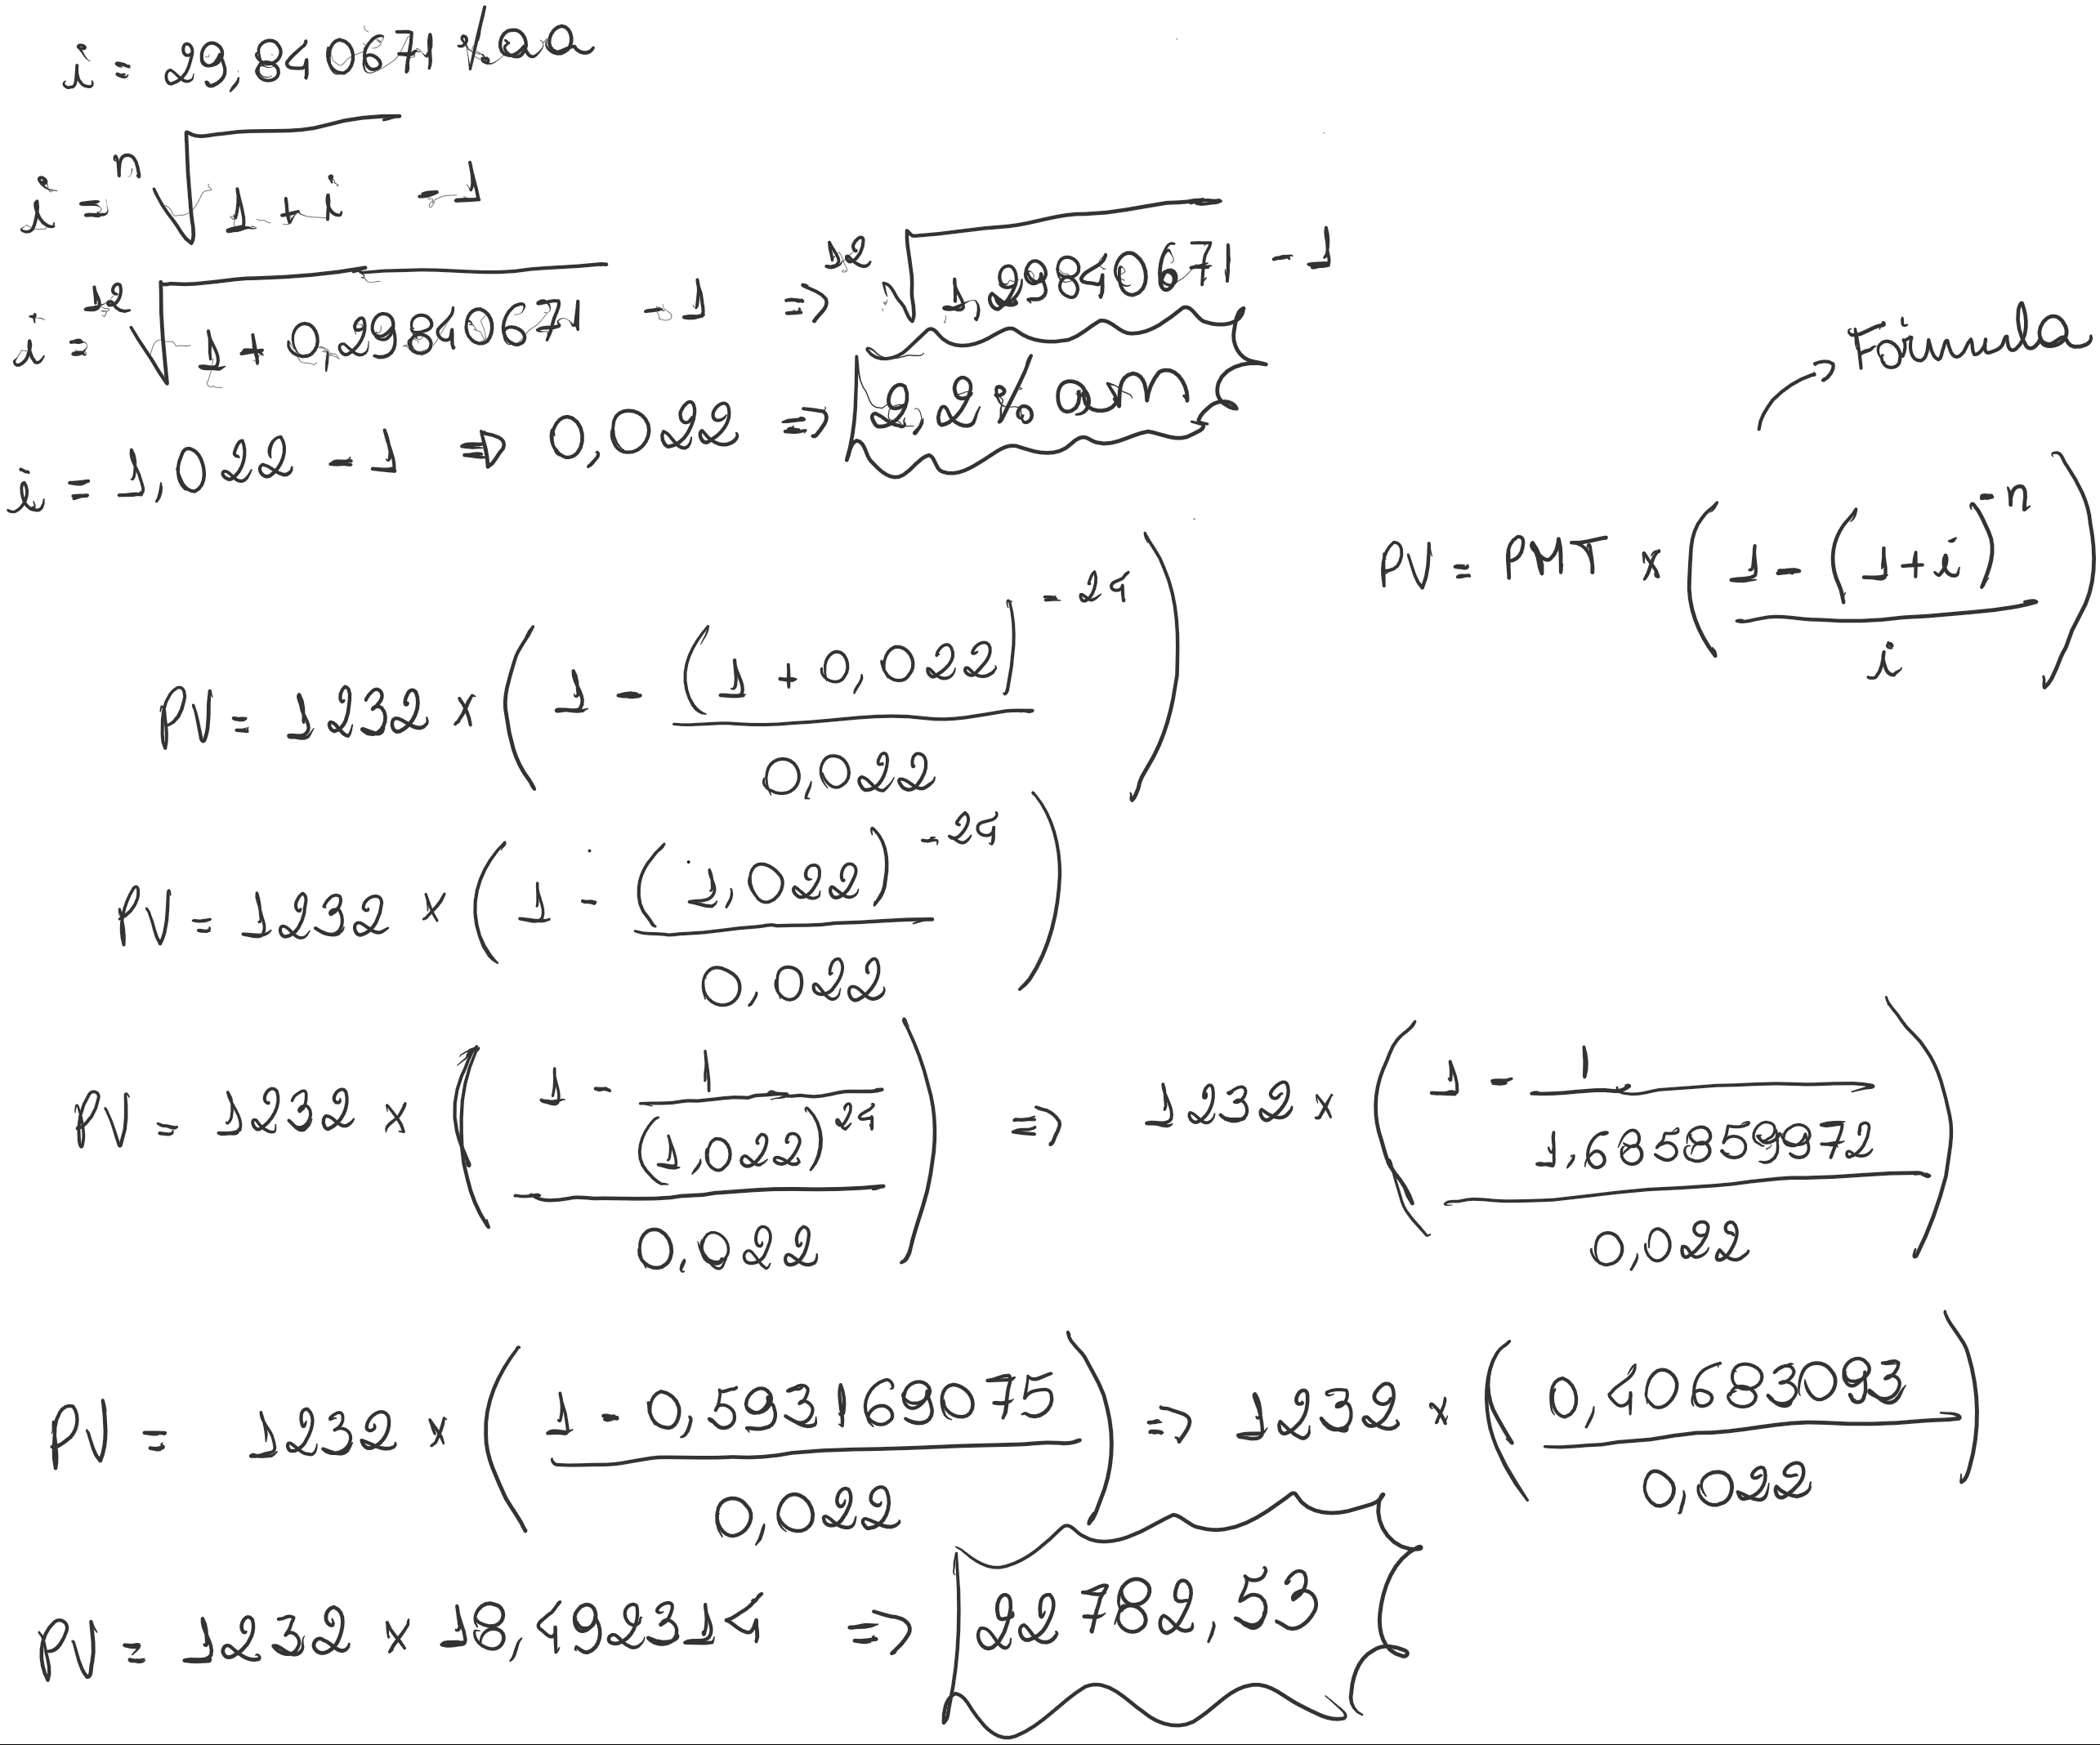 i = 29,840671 % aa
i = ⁿ√(1 + i) - 1
i = ¹²√(1 + 0,29840671) - 1 => ¹²√(1,29840671) - 1
i = 1,022 - 1 => 0,022 => 2,2% am
→ Fórmula
PV = PMT x ((1 - (1+i)^-n) / i)
PV = 1232 x (1 - (1 + 0,022)^-24 / 0,022)
PV = 1232 x (1 - (1,022)^-24 / 0,022)
PV = 1232 x ((1 - 1/(1,022)^24) / 0,022) => 1232 x ((1 - 1/1,6858589972) / 0,022)
PV = 1232 x ((1 - 0,593169075) / 0,022) => 1232 x (0,40683093 / 0,022)
PV = 1232 x 18,492314 => 22782,53